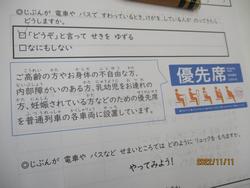 ◎じぶんが 電車や バスで すわっているとき、けがを している人が のってきたら
どうしますか。
□「どうぞ」と言って せきを ゆずる
□なにもしない
ご高齢の方やお身体の不自由な方、
内部障がいのある方、乳幼児をお連れの
方、妊娠されている方などのための優先席
を普通列車の各車両に設置しています。
優先席
◎じぶんが 電車や バスなど せまいところでは どのように リュックを もちますか。
やってみよう!
2022/11/11